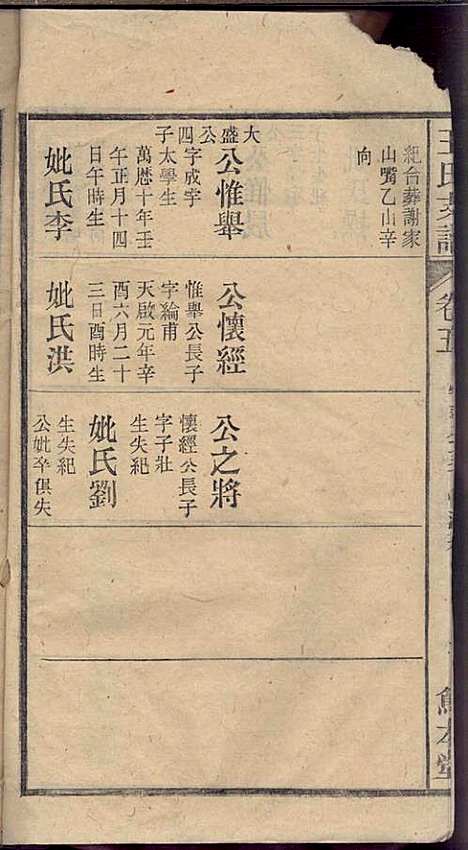 王氏支譜
卷五
紀合葬謝家
山嘴乙山辛
向
公惟舉
大盛公
四字成宇
子太學生
萬厯十年壬
午正月十四
日午時生
妣氏李
公懷經
惟舉公長子
字綸甫
天啟元年辛
酉六月二十
三日酉時生
妣氏洪
公之將
懷經公長子
字子壯
生失紀
妣氏劉
生失紀
公妣卒俱失